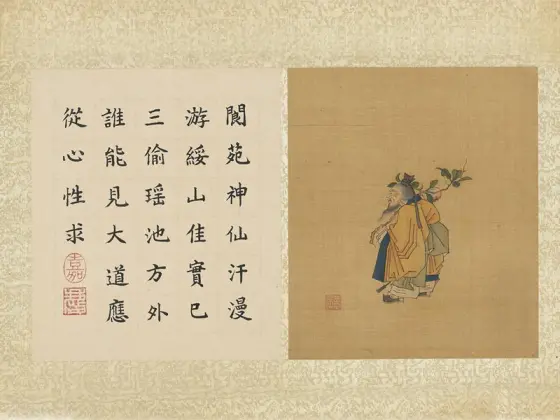 閬苑神仙汗漫
游綏山佳實已
三偷瑶池方外
誰能見大道應
從心性求